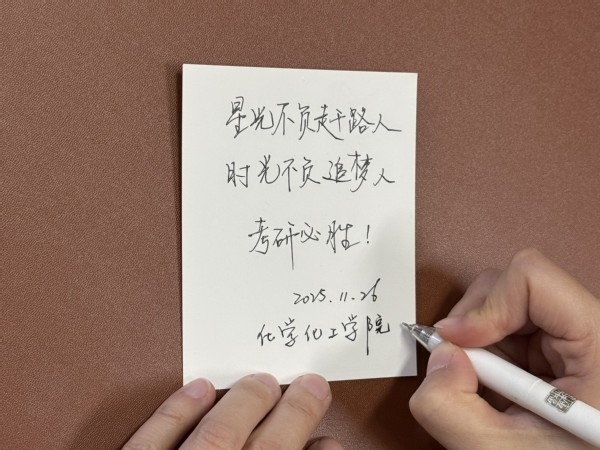 星光不负赶路人
时光不负追梦人
考研必胜!
2025.11.26
化学化工学院